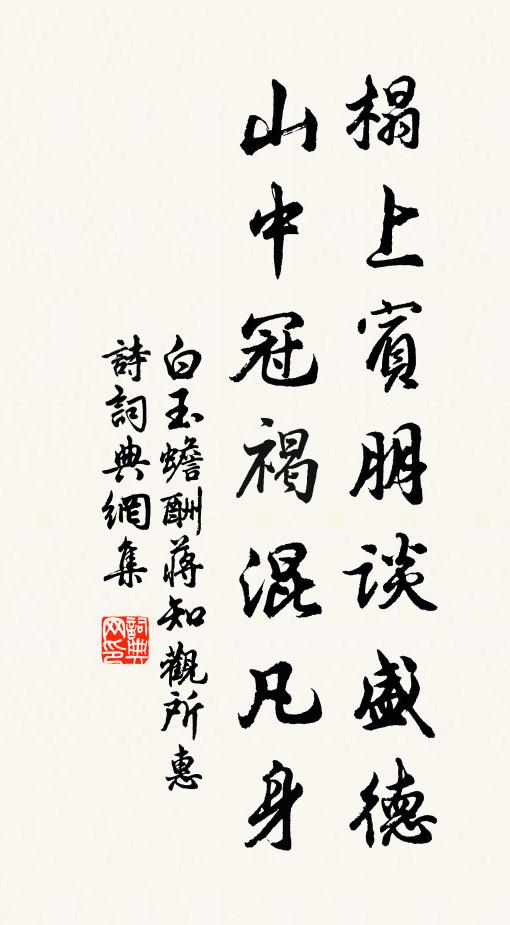 榻上賓朋談盛德
山中冠褐混凡身
白玉蟾酬蔣知觀所惠
詩詞典網集
詞典網印